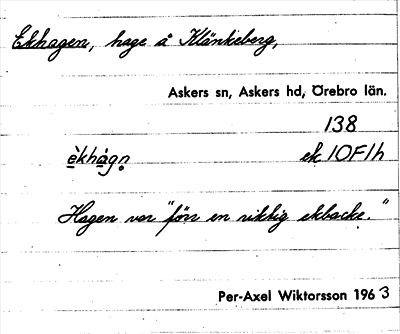 Ekhagen, hage å Klänkeberg,
Askers sn, Askers hd, Örebro län.
138
èkhàgn̥ ek. 10F1h
Hagen var "förr en riktig ekbacke."
Per-Axel Wiktorsson 1963